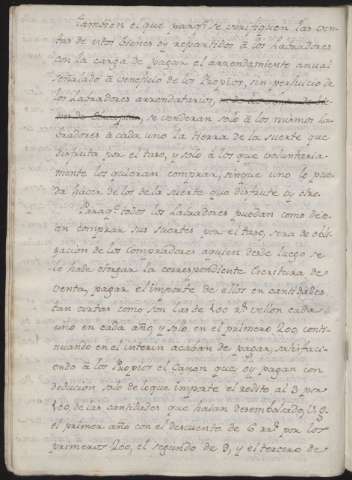 tambien el que para q.e se verifiquen las ven-
tas de estos bienes oy repartidos à los Labradores
con la carga de pagar el arrendamiento anual
señalado à beneficio de los Propios, sin perjuicio de
los Labradores arrendatarios,
se venderan solo à los mismos la-
bradores à cada uno la tierra de la suerte que
disfruta por el taso, y solo à los que voluntaria-
mente las quieran comprar, sin que uno le pue-
da hacer de los de la suerte que disfrute oy otro.
Para q.e todos los Labradores puedan como de-
ven comprar sus suertes por el taso, sera de obli-
gacion de los Compradores aquien desde luego se
le hade otorgar la correspondiente Escritura de
venta, pagar el importe de ellos en cantidades
tan cortas como son las de 100 r.s vellon cada
uno en cada año, y solo en el primero 200, conti-
nuando en el interin acaban de pagar, satisfaci-
endo à los Propios el Canon que oy pagan con
deducion solo de loque importe el redito al 3 por
100, de las cantidades que haian desembolsado, V.g.
el primer año con el descuento de 6 r.s por los
primeros 200, el segundo de 9, y el tercero de